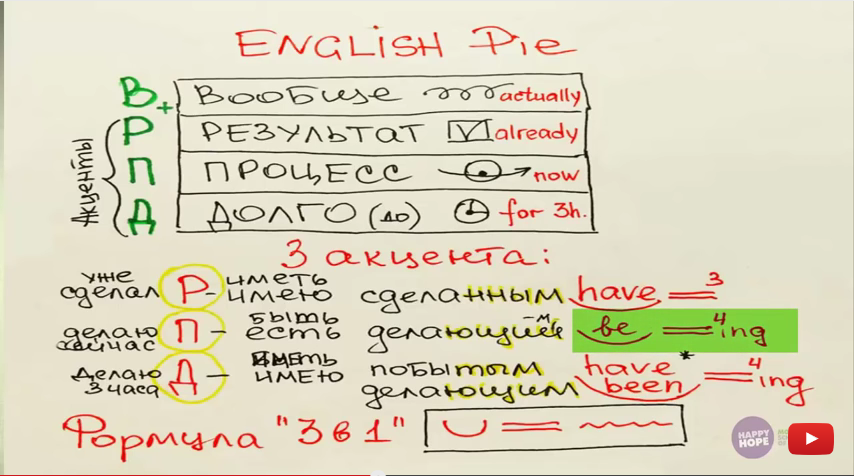 ENGLISH Pie
В+ ВООБЩЕ actually
Акценты
Р РЕЗУЛЬТАТ V already
П ПРОЦЕСС now
Д ДОЛГО (до) for 3h.
3 акцента:
уже сделал Р - иметь имею сделанным have 3
делаю сейчас П - быть есть делающим be 4 ing
делаю 3 часа Д - иметь имею побытым делающим have been * 4 ing
Формула "3 в 1"
HAPPY HOPE